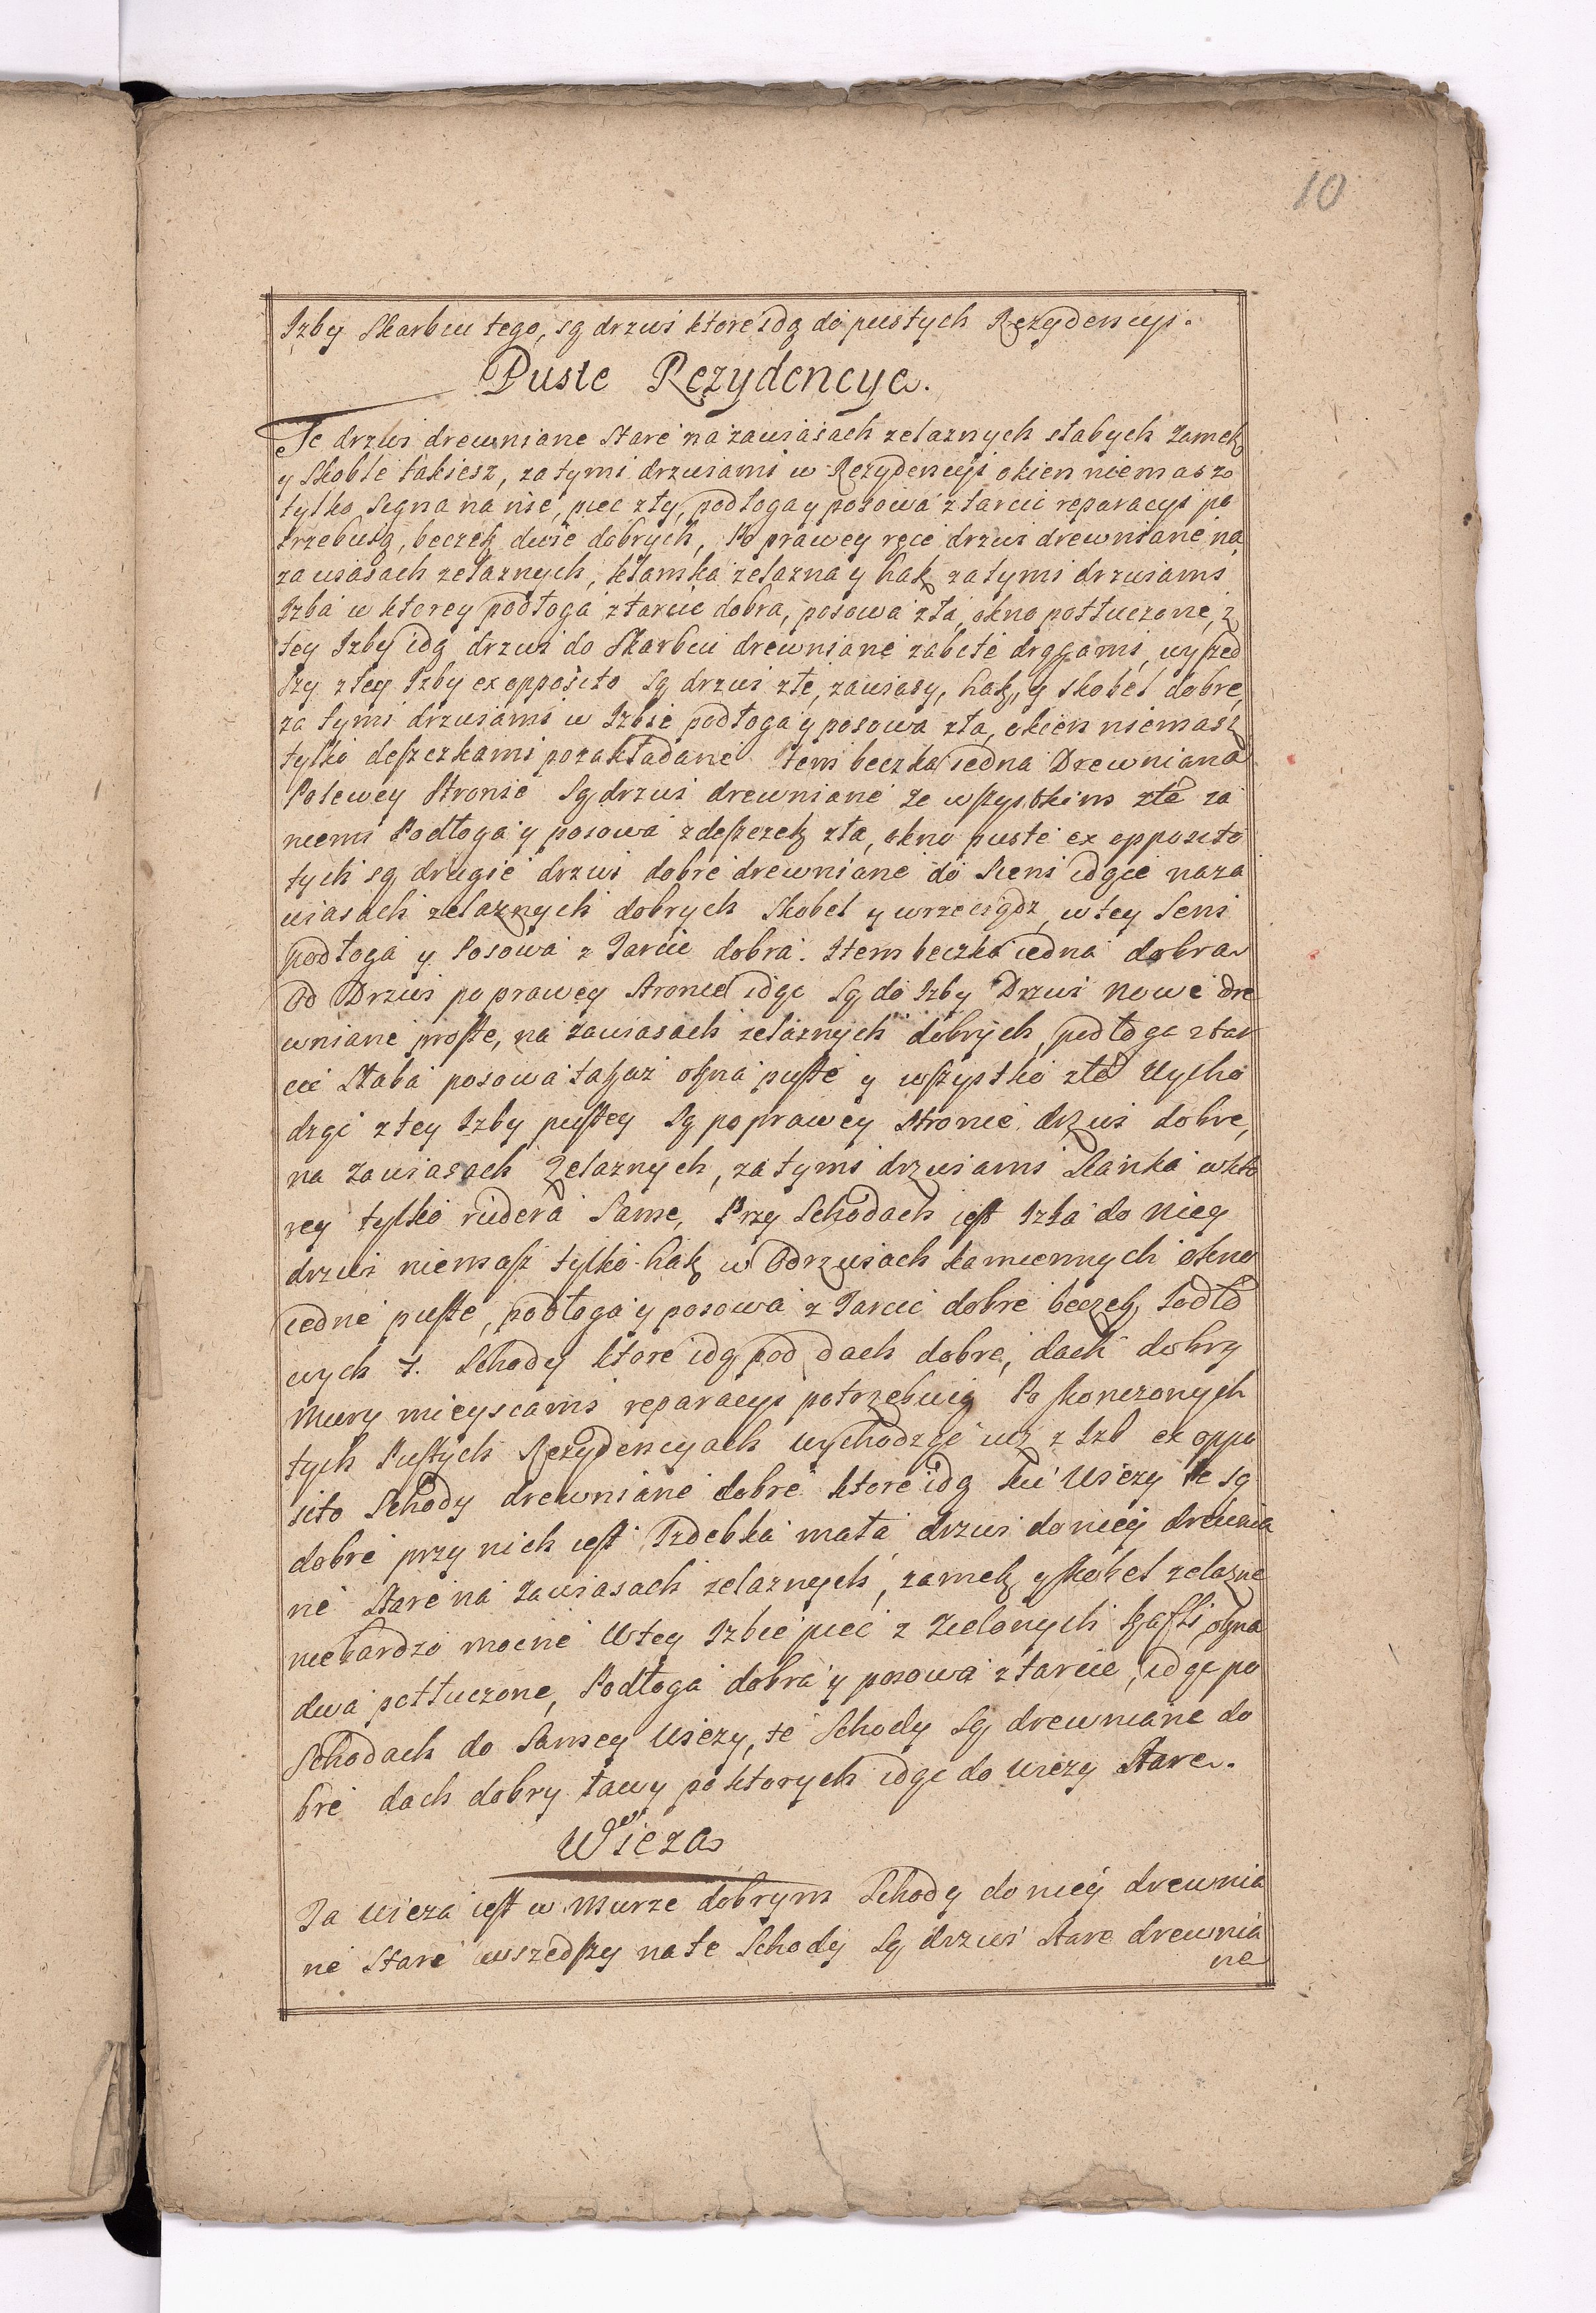 10
Izby Skarbcu tego, są drzwi ktore idą do pustych Rezydencyi.
Puste Rezydencye.
Te drzwi drewniane stare na zawiasach zelaznych słabych zamek
y skoble takiesz, za tymi drzwiami w Rezydencyi okien niemasz
tylko Scgna na nie, piec zły, podłoga y posowa z tarcic reparacyi po
trzebuią, beczek dwie dobrych, Po prawey ręce drzwi drewniane na
zawiasach zelaznych, klamka zelazna y hak za tymi drzwiami
Izba w ktorey podłoga z tarcic dobra, posowa zła, okno potłuczone, z
tey Izby idą drzwi do Skarbcu drewniane zabite drągami, wyszed
szy z tey Izby ex opposito są drzwi złe, zawiasy, hak, y skobel dobre,
za tymi drzwiami w Izbie podłoga y posowa zła, okien niemasz
tylko deszczkami pozakładane Item beczka iedna Drewniana
Po lewey stronie są drzwi drewniane ze wszystkim złe za
niemi Podłoga y posowa z deszczek zła, okno puste ex opposito
tych są drugie drzwi dobre drewniane do Sieni idące na za
wiasach zelaznych dobrych skobel y wrzeciądz, w tey Seni
podłoga y Posowa z Tarcic dobra. Item beczka iedna dobra
Od Drzwi po prawey stronie idąc są do Izby Drzwi nowe dre
wniane proste, na zawiasach zelaznych dobrych, podłoga z tar
cic słaba posowa takaz okna puste y wszystko złe Wycho
dząc z tey Izby pustey są po prawey stronie drzwi dobre,
na zawiasach zelaznych, za tymi drzwiami Sianka w kto
rey tylko rudera same, Przy schodach iest Izba do niey
drzwi niemasz tylko hak w Odrzwiach kamiennych okno
iedne puste, podłoga y posowa z Tarcic dobre beczek Sodło
wych 7. Schody ktore idą pod dach dobre, dach dobry
mury mieyscami reparacyi potrzebuią Po skonczonych
tych Pustych Rezydencyach wychodząc iuz z Izb ex oppo
sito Schody drewniane dobre ktore idą ku Wiezy te są
dobre przy nich iest Izdebka mała drzwi do niey drewnia
ne stare na zawiasach zelaznych, zamek y skobel zelazne
nie bardzo mocne W tey Izbie piec z Zielonych kafli, okna
dwa potłuczone, Podłoga dobra y posowa z tarcic, idąc po
Schodach do samey Wiezy, te Schody są drewniane do
bre dach dobry ławy po ktorych idąc do Wiezy stare.
Wieza
Ta Wieza iest w murze dobrym Schody do niey drewnia
ne stare wszedszy na te Schody są drzwi stare drewnia
ne